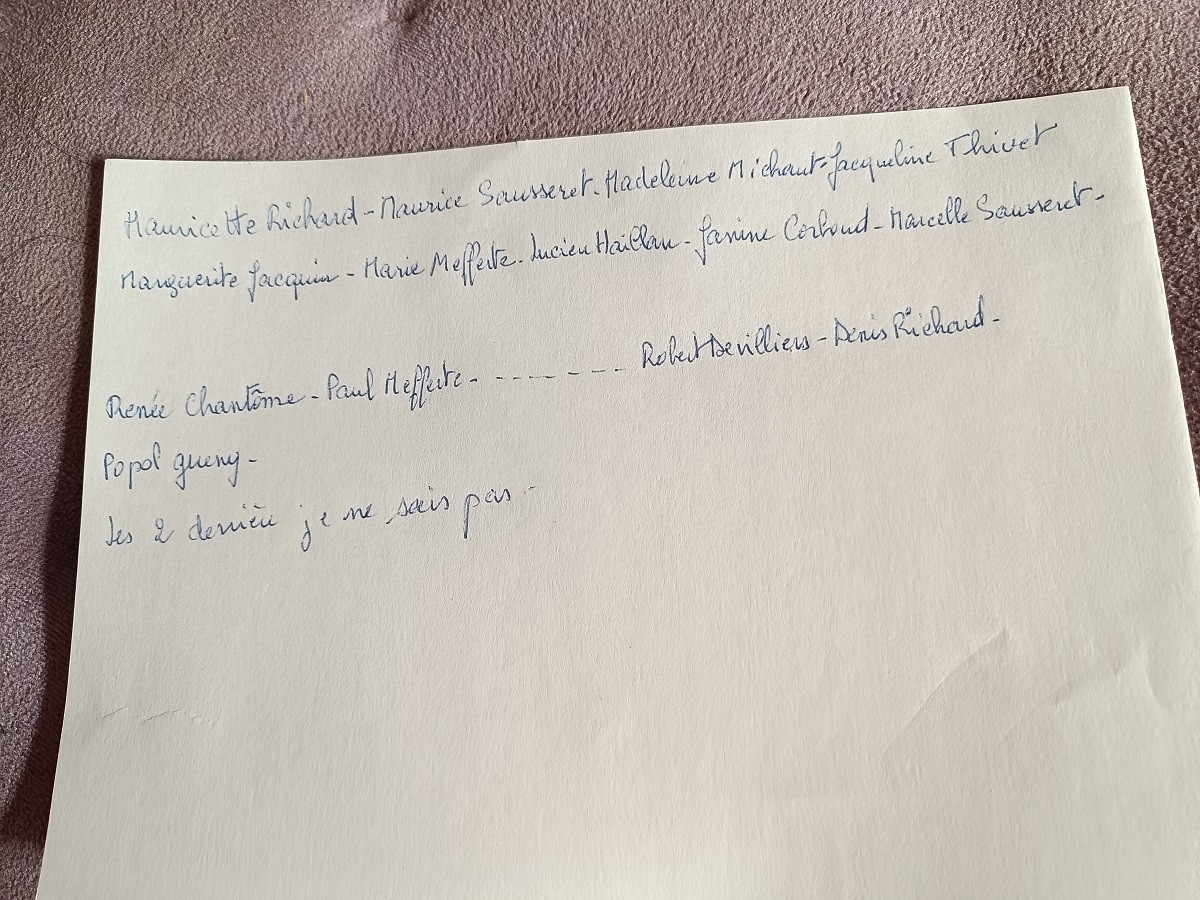 Mauricette Richard - Maurice Sausseret - Madeleine Michaut - Jacqueline Thivet
Marguerite Jacquin - Marie Mefferte - Lucien Haillan - Janine Corboud - Marcelle Sausseret -
Renée Chantôme - Paul Mefferte - - - - - - - - Robert Devilliers - Denis Richard -
Popol gueny -
Les 2 dernièr je ne sais pas -